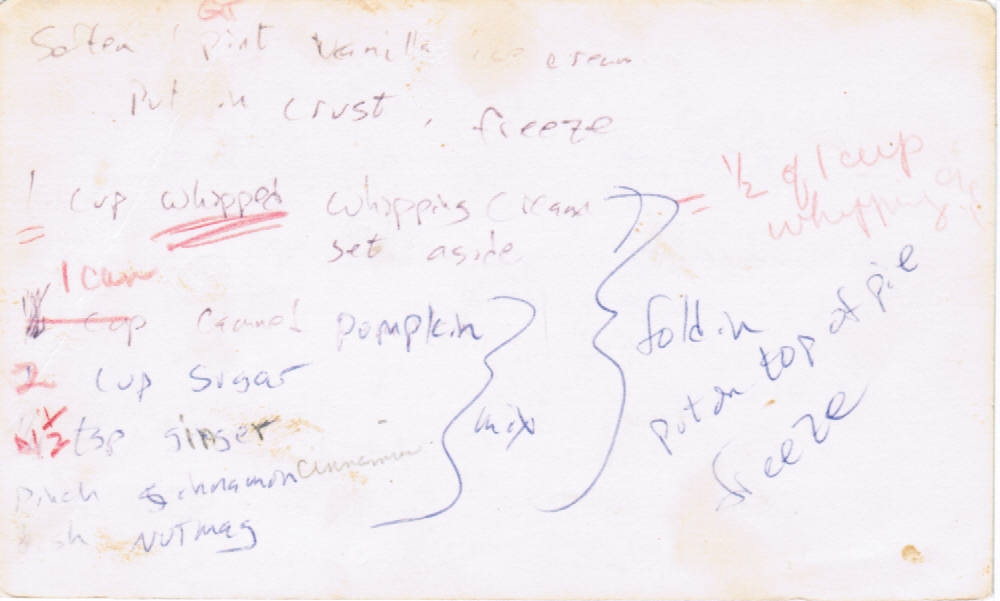 QT
Soften 1 pint Vanilla ice cream
Put in crust, freeze
1 cup whipped whipping cream = 1/2 of 1 cup
whipping
set aside
1 can
cup canned pumpkin
2 cup sugar
1/2 tsp ginger
pinch cinnamon cinnamon
NUTmag
mix
fold in
put on top of pie
freeze